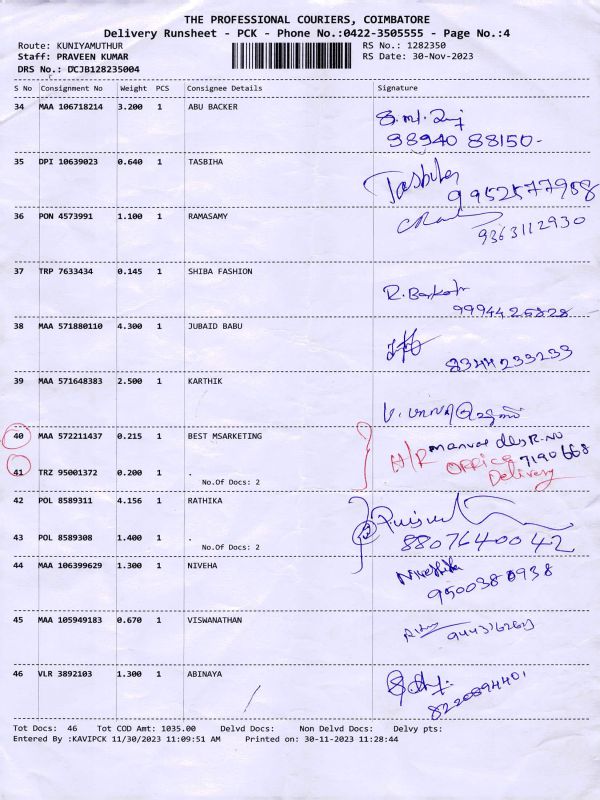 THE PROFESSIONAL COURIERS, COIMBATORE
Delivery Runsheet - PCK - Phone No.:0422-3505555 - Page No.:4
Route: KUNIYAMUTHUR RS No.: 1282350
Staff: PRAVEEN KUMAR RS Date: 30-Nov-2023
DRS No.: DCJB128235004
S No Consignment No Weight PCS Consignee Details Signature
34 MAA 106718214 3.200 1 ABU BACKER
98940 88150-
35 DPI 10639023 0.640 1 TASBIHA Tasbiha
9952577958
36 PON 4573991 1.100 1 RAMASAMY
9363112930
37 TRP 7633434 0.145 1 SHIBA FASHION
R. Barkath
9994426828
38 MAA 571880110 4.300 1 JUBAID BABU
8344233233
39 MAA 571648383 2.500 1 KARTHIK
40 MAA 572211437 0.215 1 BEST MSARKETING H/R manual des R.NO
OFFICE 7190668
41 TRZ 95001372 0.200 1 . Delivery
No.Of Docs: 2
42 POL 8589311 4.156 1 RATHIKA
43 POL 8589308 1.400 1 . 8807640042
No.Of Docs: 2
44 MAA 106399629 1.300 1 NIVEHA Nivethika
9500380938
45 MAA 105949183 0.670 1 VISWANATHAN
46 VLR 3892103 1.300 1 ABINAYA
8220894401
Tot Docs: 46 Tot COD Amt: 1035.00 Delvd Docs: Non Delvd Docs: Delvy pts:
Entered By :KAVIPCK 11/30/2023 11:09:51 AM Printed on: 30-11-2023 11:28:44